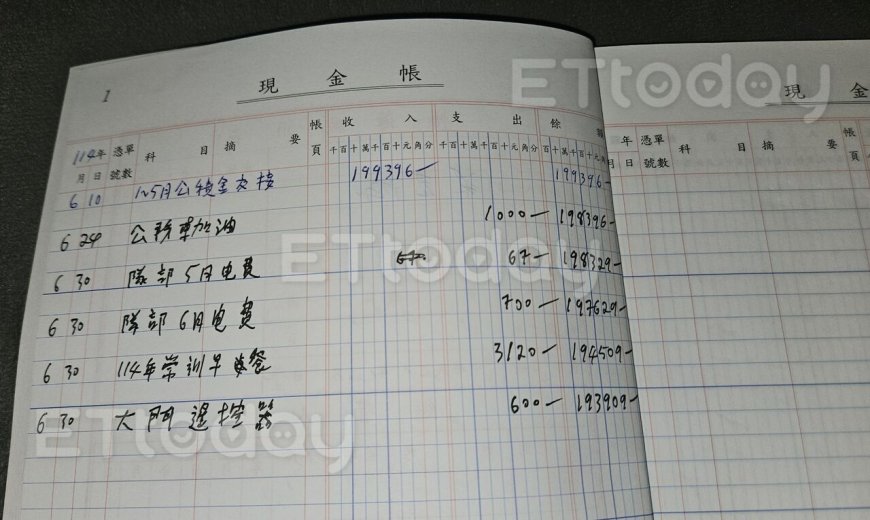 1
現金帳
現金
114年 憑單 科目 摘要 帳 收入 支出 餘額
月日 號數 頁 千百十萬千百十元角分 千百十萬千百十元角分 百十萬千百十元角分
年 憑單 科目 摘要
月日 號數
6 10 1~5月公積金交接 199396- 199396-
6 24 公務車加油 1000- 198396-
6 30 隊部5月电費 67- 198329-
6 30 隊部6月电費 700- 197629-
6 30 114年常訓早餐 3120- 194509-
6 30 大門遥控器 600- 193909-
ETtoday
ETtoday
ETtoday